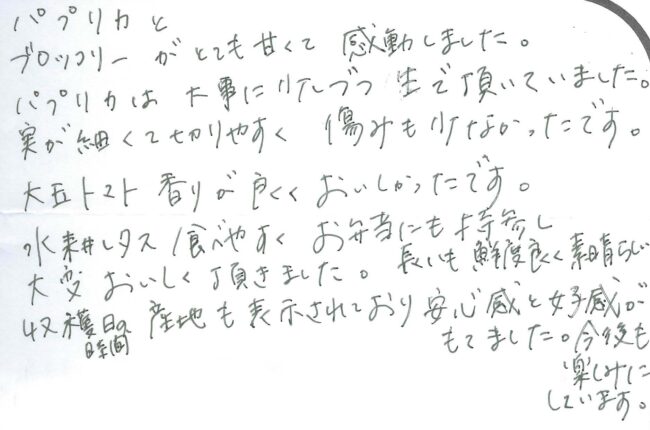 パプリカと
ブロッコリーがとても甘くて 感動しました。
パプリカは 大事に少しづつ 生で頂いていました。
実が細くて切りやすく 傷みも少なかったです。
大玉トマト 香りが良くくおいしかったです。
水耕レタス 食べやすく お弁当にも持参し
大変おいしく頂きました。長いも鮮度良く素晴らしい
収穫日の時間 産地も表示されており安心感と好感が
もてました。今後も
楽しみに
しています。